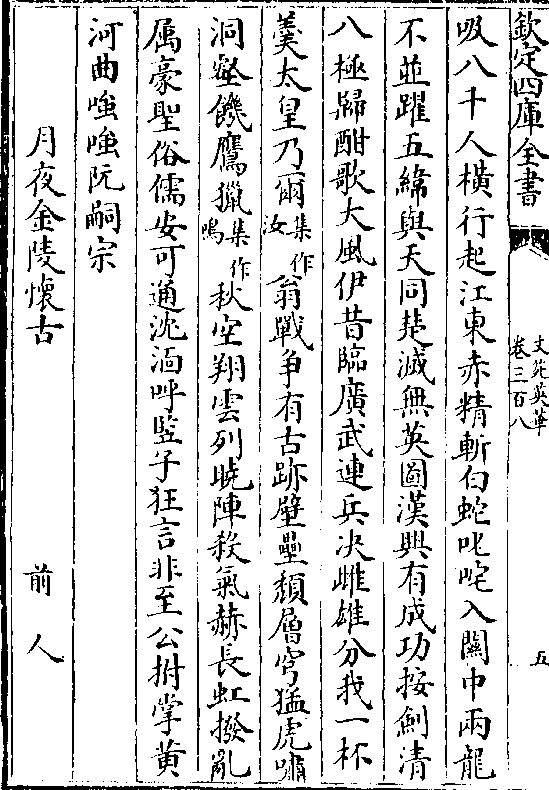 欽定四庫全書
文苑英華
卷三百八
五
吸八千人横行起江東赤精斬白蛇叱咤入關中兩龍
不並躍五緯與天同楚滅無英圖漢興有成功按劍清
八極歸酣歌大風伊昔臨廣武連兵決雌雄分我一杯
羮太皇乃爾集作汝翁戰爭有古跡壁壘頹層穹猛虎嘯
洞壑饑鷹獵集作鳴秋空翔雲列曉陣殺氣赫長虹撥亂
属豪聖俗儒安可通沈湎呼豎子狂言非至公拊掌黄
河曲嗤嗤阮嗣宗
月夜金陵懷古 前人